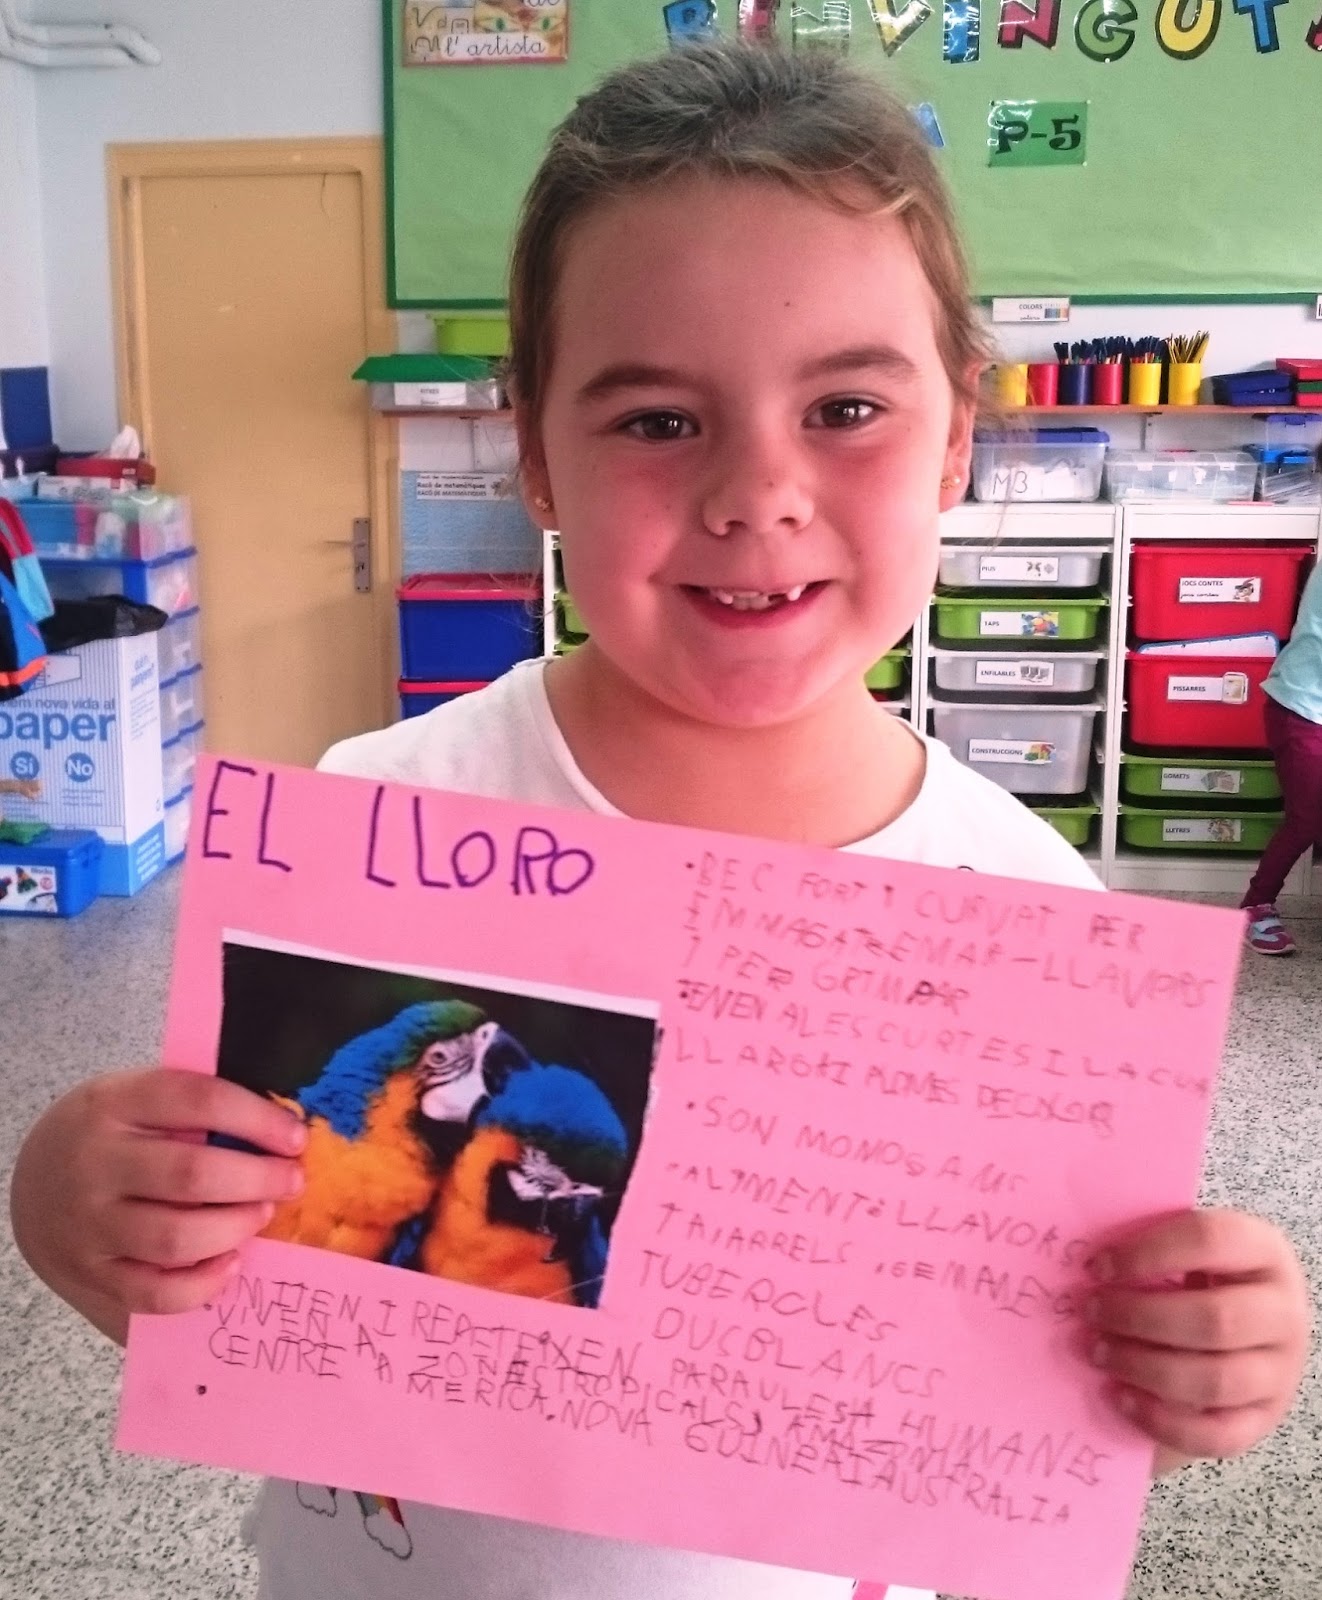 l'artista
BENVINGUTS
P-5
COLORS
Racó de matemàtiques
Racó de matemàtiques
RACÓ DE MATEMÀTIQUES
M3
PIUS
TAPS
ENFILABLES
CONSTRUCCIONS
JOCS CONTES
PISSARRES
GOMETS
LLETRES
nova vida al
paper
Sí
No
EL LLORO
•BEC FORT I CURVAT PER
EMMAGATZEMAR-LLAVORS
I PER GRIMPAR
TENEN ALES CURTES I LA CUA
LLARGA I PLOMES DE COLOR
•SON MONOGAMS
•ALIMENTS LLAVORS
ARRELS
TUBERCLES
OUS BLANCS
•IMITEN I REPETEIXEN PARAULES HUMANES
•VIVEN A ZONES TROPICALS, AMAZONIA
CENTRE A AMERICA. NOVA GUINEA I AUSTRALIA